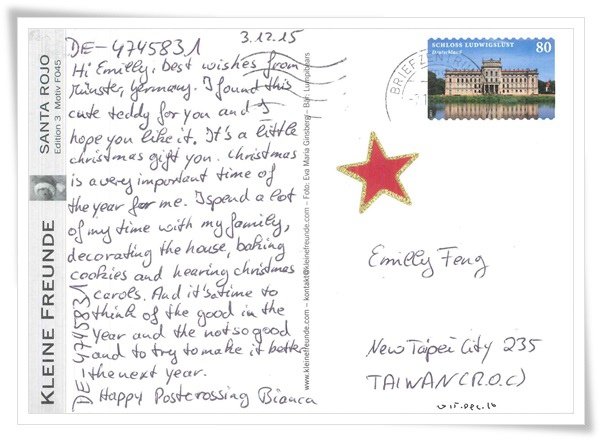 3.12.15
DE-4745831
Hi Emilly, best wishes from
Münster, Germany. I found this
cute teddy for you and I
hope you like it. It's a little
christmas gift you. Christmas
is a very important time of
the year for me. I spend a lot
of my time with my family,
decorating the house, baking
cookies and hearing christmas
carols. And it's time to
think of the good in the
year and the not so good
and to try to make it better
the next year.
Happy Postcrossing Bianca
DE-4745831
KLEINE FREUNDE
SANTA ROJO
Edition 3 Motiv F045
www.kleinefreunde.com – kontakt@kleinefreunde.com – Foto: Eva Maria Ginsberg – Bär:
SCHLOSS LUDWIGSLUST
Deutschland
80
BRIEFZENTRUM
Emilly Feng
New Taipei City 235
TAIWAN (R.O.C)